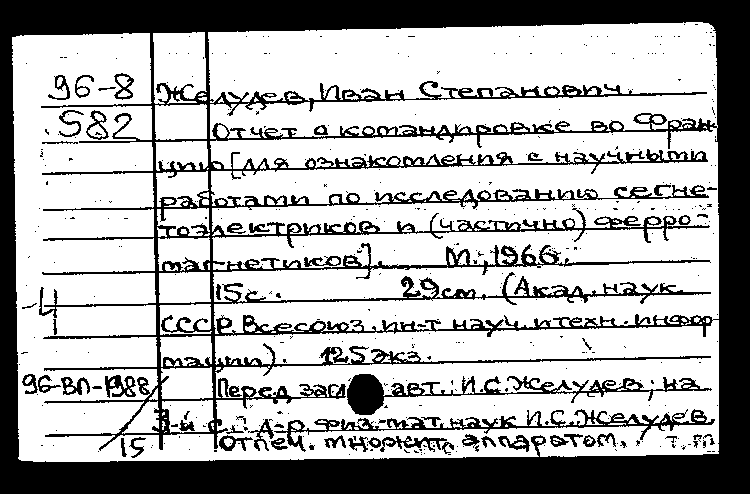 96-8 Желудев, Иван Степанович.
582 Отчет о командировке во Фран-
цию [для ознакомления с научными
работами по исследованию сегне-
тоэлектриков и (частично) ферро-
магнетиков]. М., 1966.
15с. 29см. (Акад. наук
-4
СССР. Всесоюз. ин-т науч. и техн. инфор
мации). 125экз.
96-ВП-1988 Перед загл авт.: И.С. Желудев; на
3-й с.: д-р физ.-мат. наук И.С. Желудев.
15 Отпеч. множит. аппаратом.